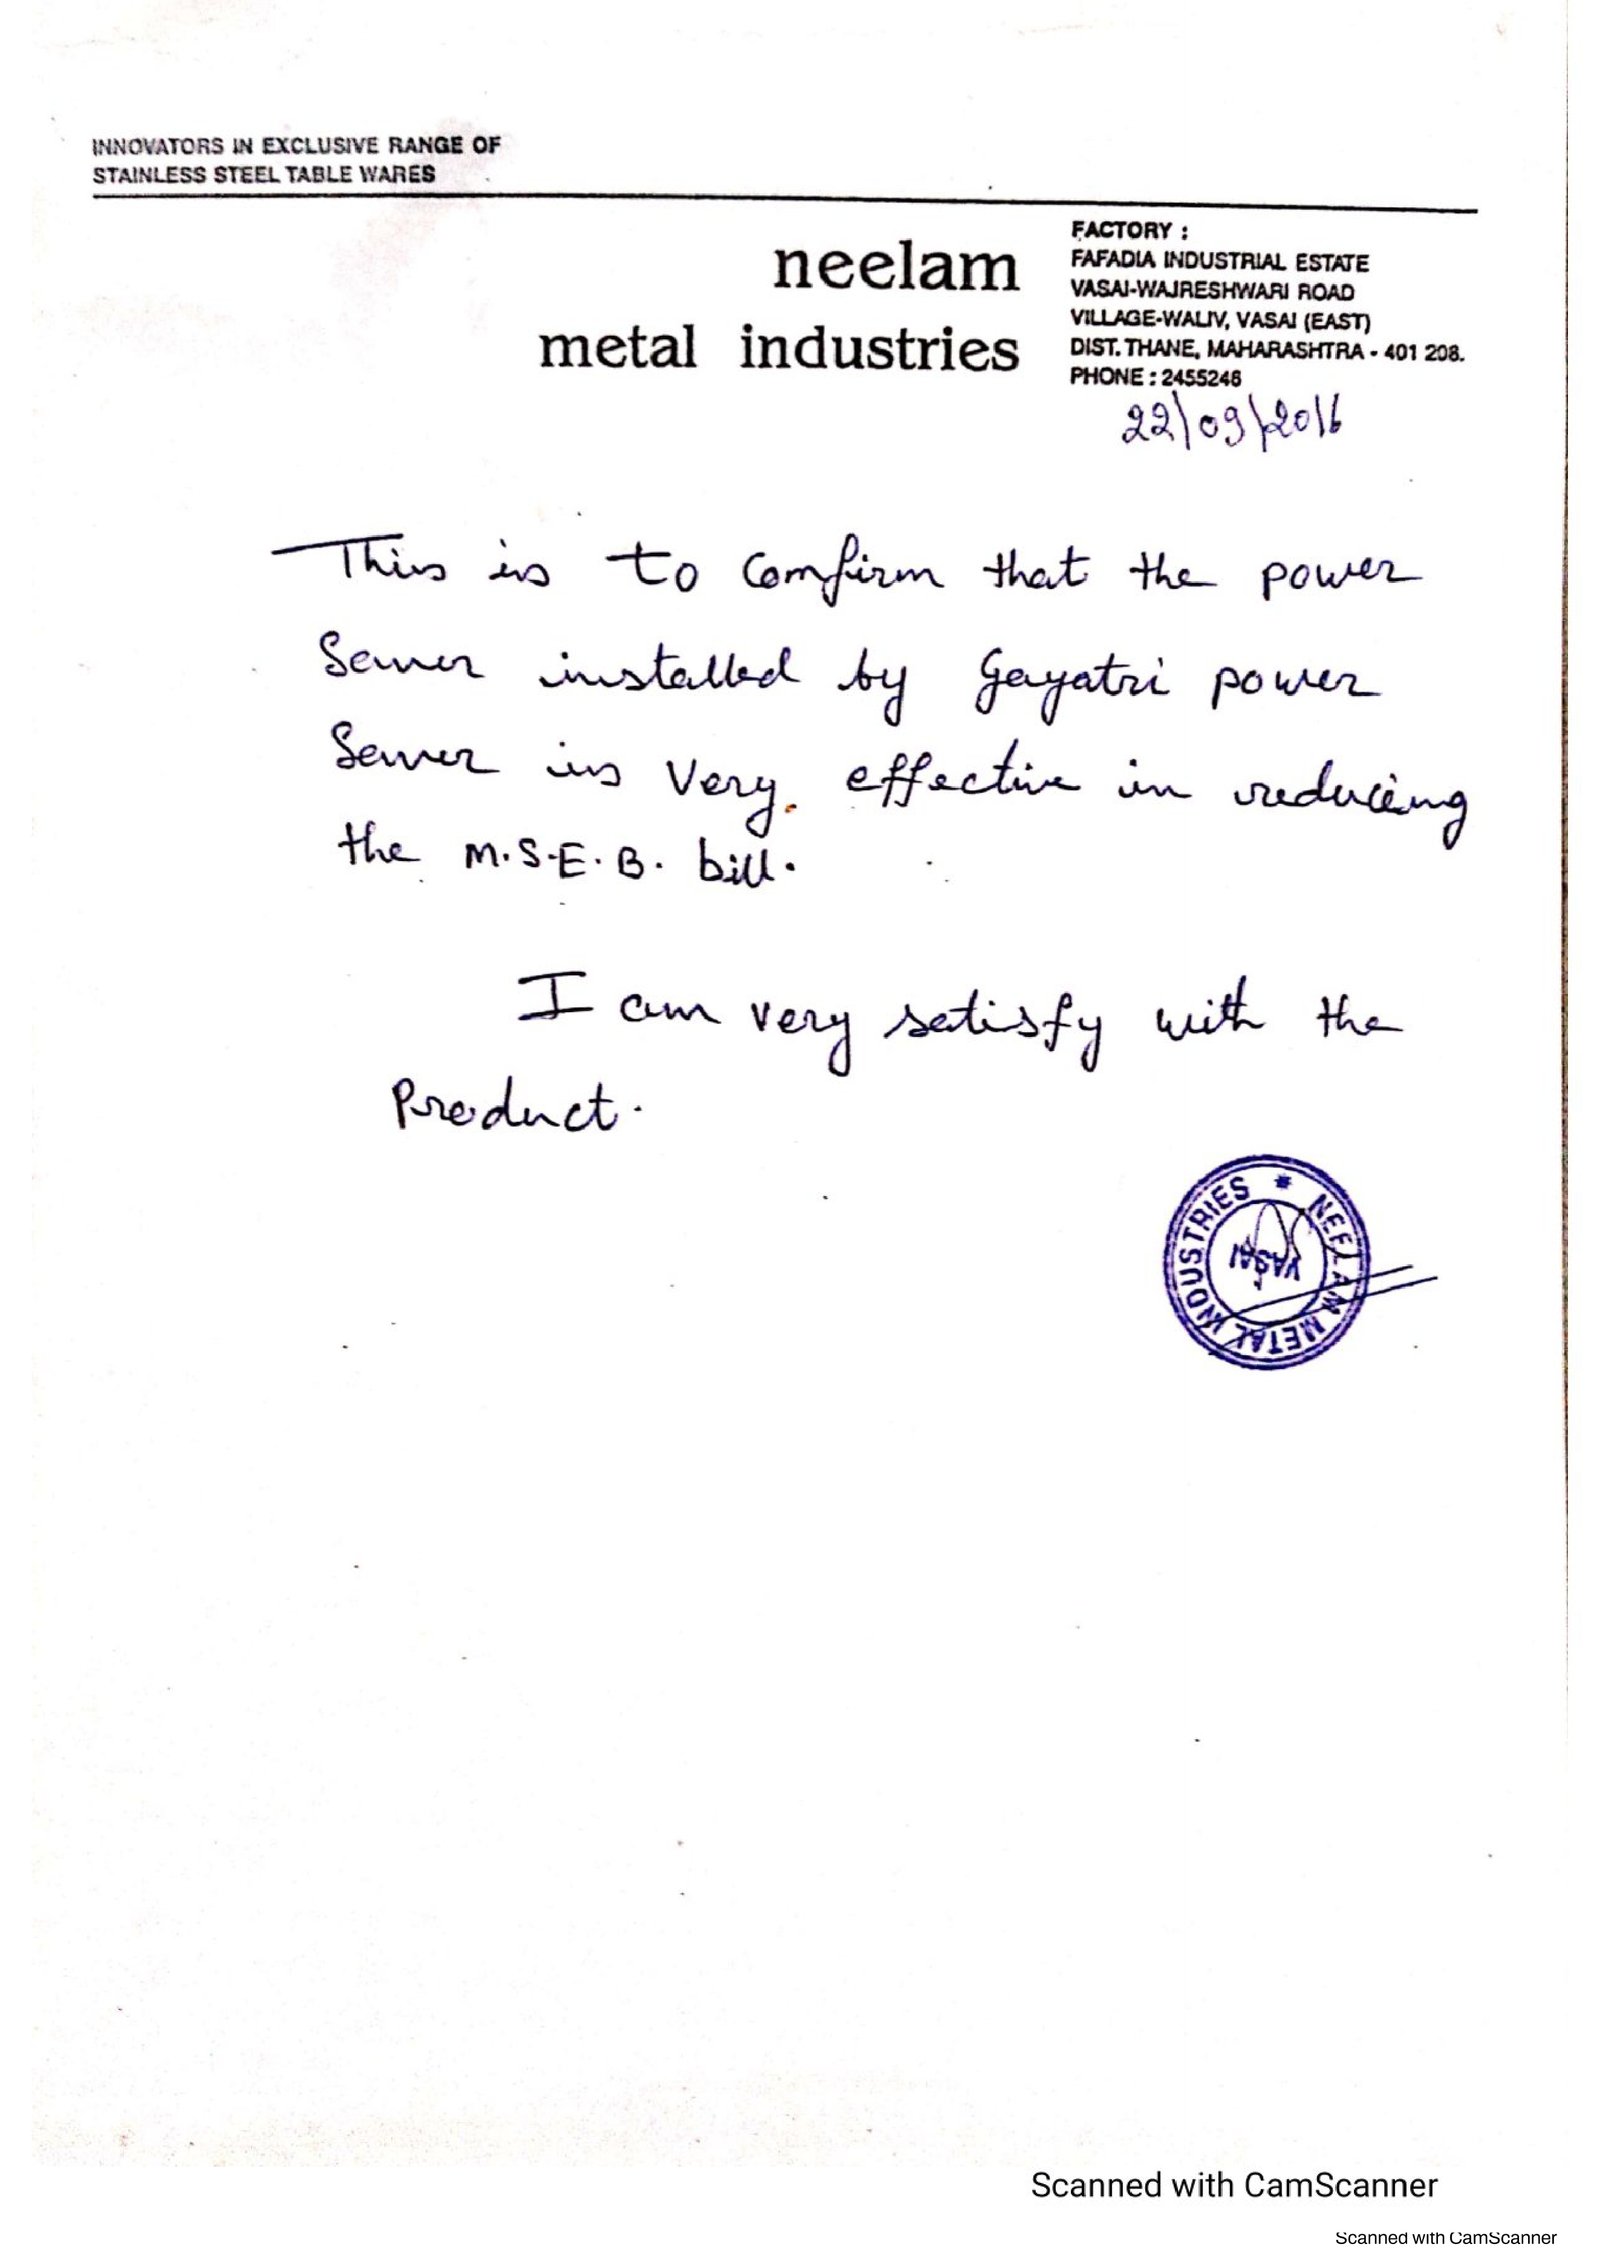 INNOVATORS IN EXCLUSIVE RANGE OF
STAINLESS STEEL TABLE WARES
neelam
metal industries
FACTORY :
FAFADIA INDUSTRIAL ESTATE
VASAI-WAJRESHWARI ROAD
VILLAGE-WALIV, VASAI (EAST)
DIST. THANE, MAHARASHTRA - 401 208.
PHONE : 2455246
22\09\2016
This is to comfirm that the power
Sever installed by Gayatri power
Sever is very effective in reducing
the M.S.E.B. bill.
I am very satisfy with the
Product.
NEELAM METAL INDUSTRIES *
VASAI
Scanned with CamScanner
Scanned with CamScanner